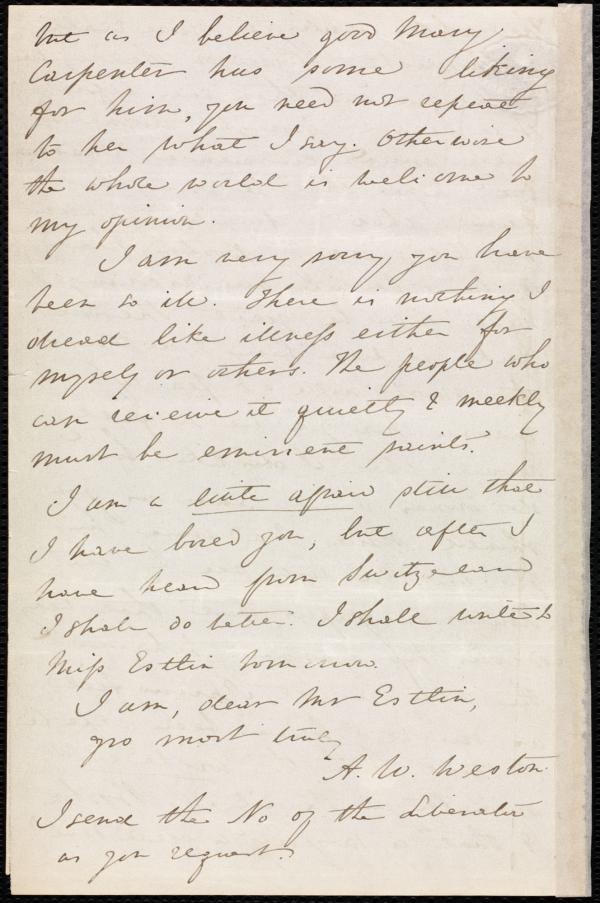 but as I believe good Mary
Carpenter has some liking
for him, you need not repeat
to her what I say. Otherwise
the whole world is welcome to
my opinion.
I am very sorry you have
been so ill. There is nothing I
dread like illness either for
myself or others. The people who
can receive it quietly & meekly
must be eminent saints.
I am a little afraid still that
I have bored you, but after I
have heard from Switzerland
I shall do better. I shall write to
Miss Estlin tomorrow.
I am, dear Mr Estlin,
yrs most truly
A. W. Weston.
I send the No of the Liberator
as you request.